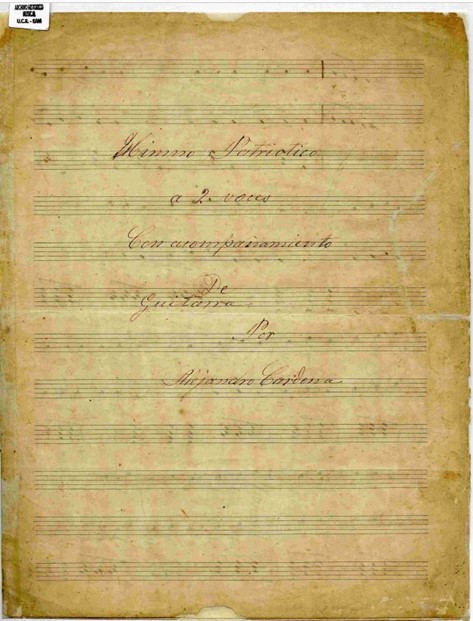 ARCHIVO HISTORICO
IHNCA
U.C.A. -
Himno Patriotico
a 2. voces
Con acompañamiento
De
Guitarra.
Por
Alejandro Cardena